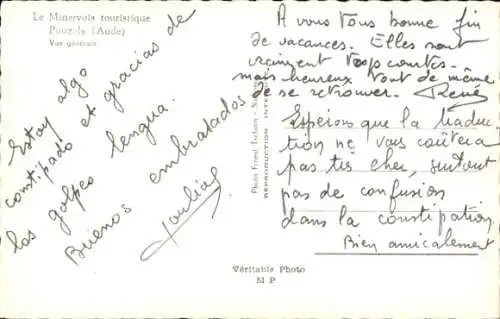 Le Minervois touristique
Pouzols (Aude)
Vue générale
Estoy algo
constipado et gracias de
las golpes lengua.
Buenos embratados
A vous Tous bonne fin
de vacances. Elles sont
vraiment trop courtes.
mais heureux tout de même
de se retrouver. René
Espérons que la traduc
tion ne vous coûtera
pas très cher, surtout
pas de confusion
dans la constipation
Bien amicalement
REPRODUCTION INTER
Véritable Photo
M P